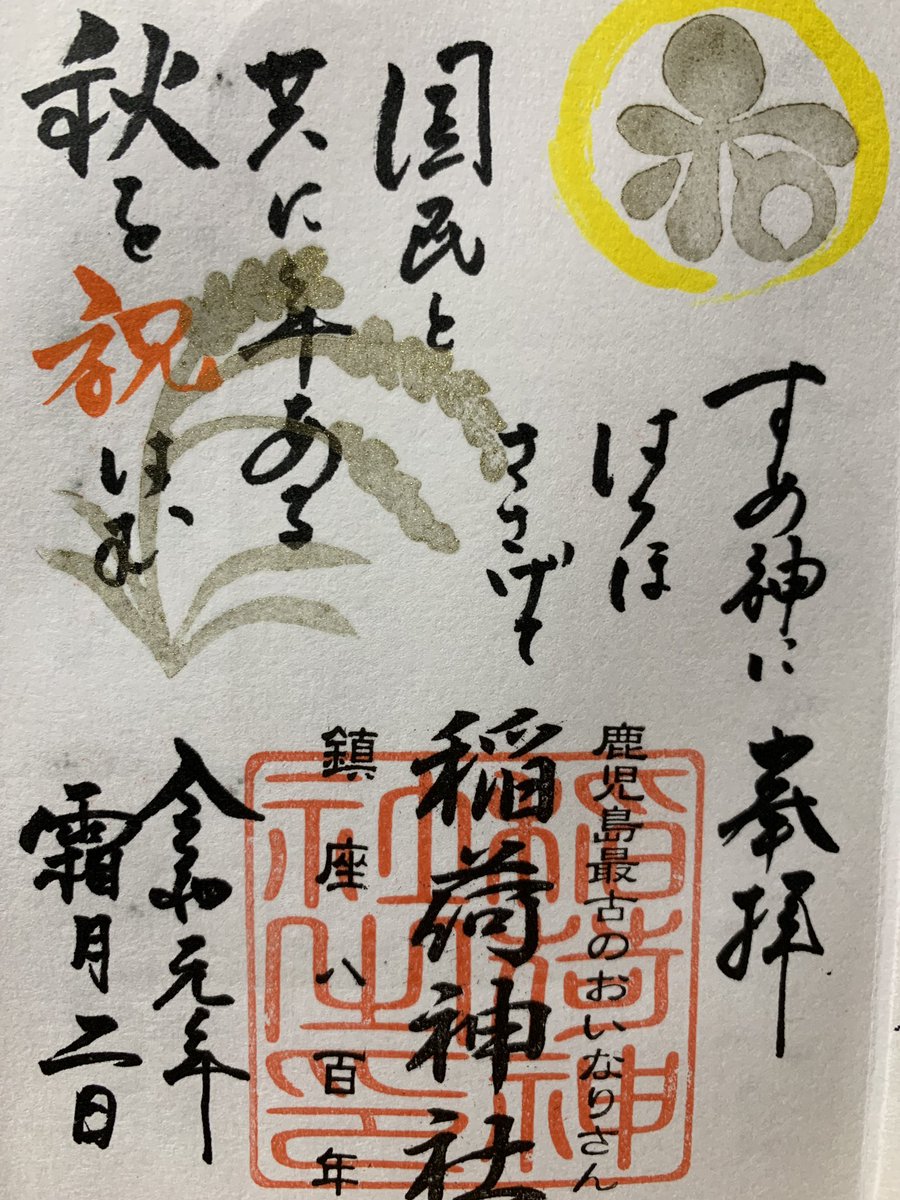 すめ神に
はつほ
ささげて
国民と
共に年ある
秋を祝はむ
奉拝
鹿児島最古のおいなりさん
稲荷神社
鎮座八百年
令和元年
霜月二日
稲荷神
社之印